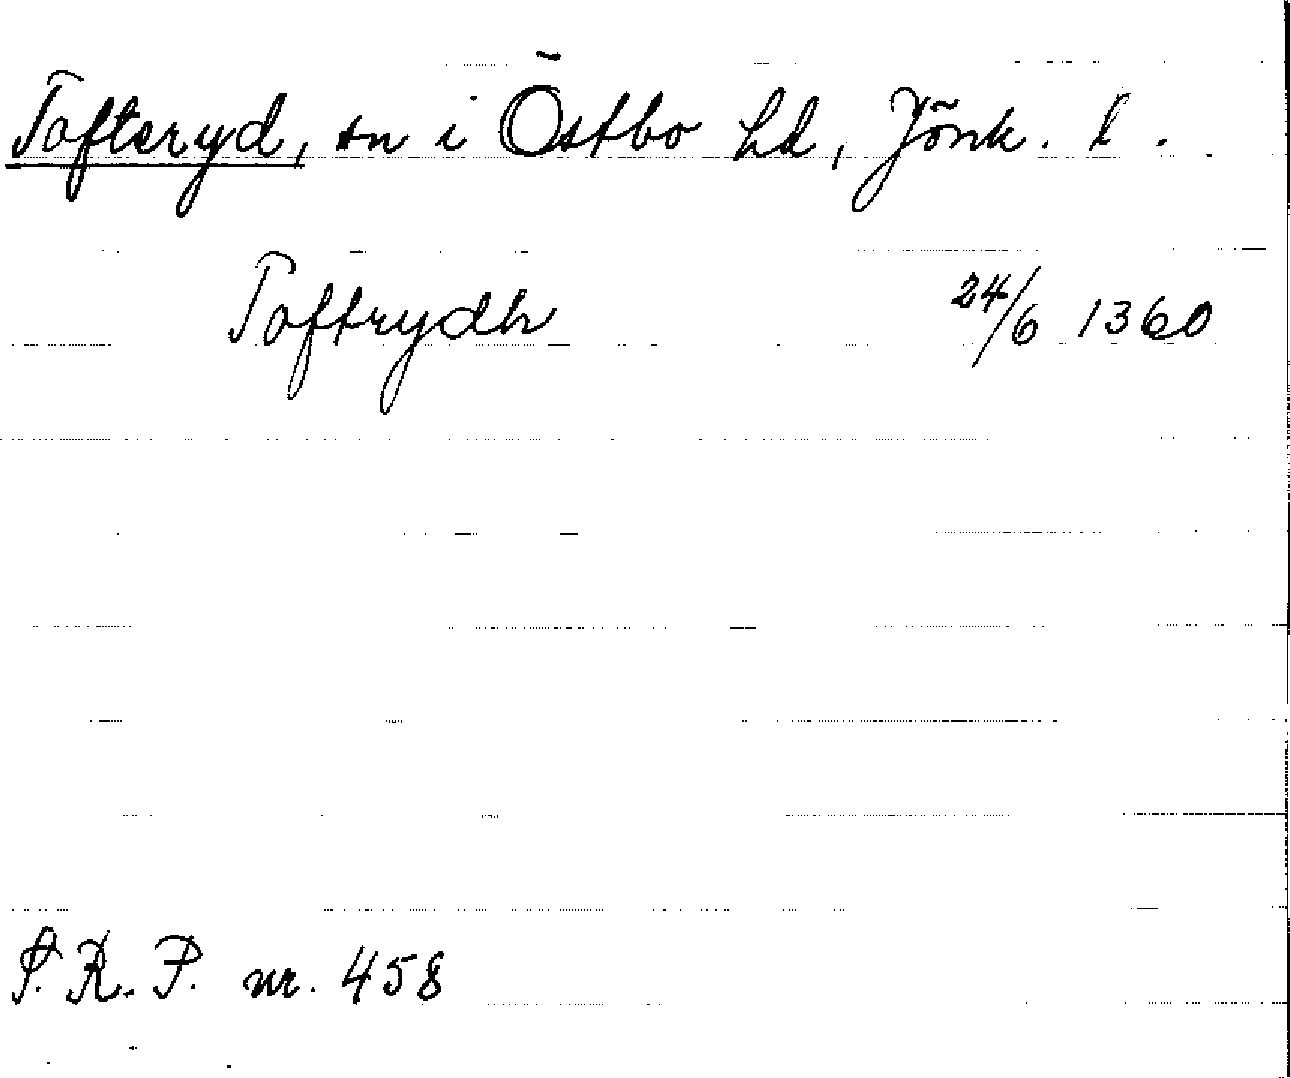 Tofteryd, sn i Östbo hd, Jönk. l.
Toftrydh 24/6 1360
S.R.P. nr. 458